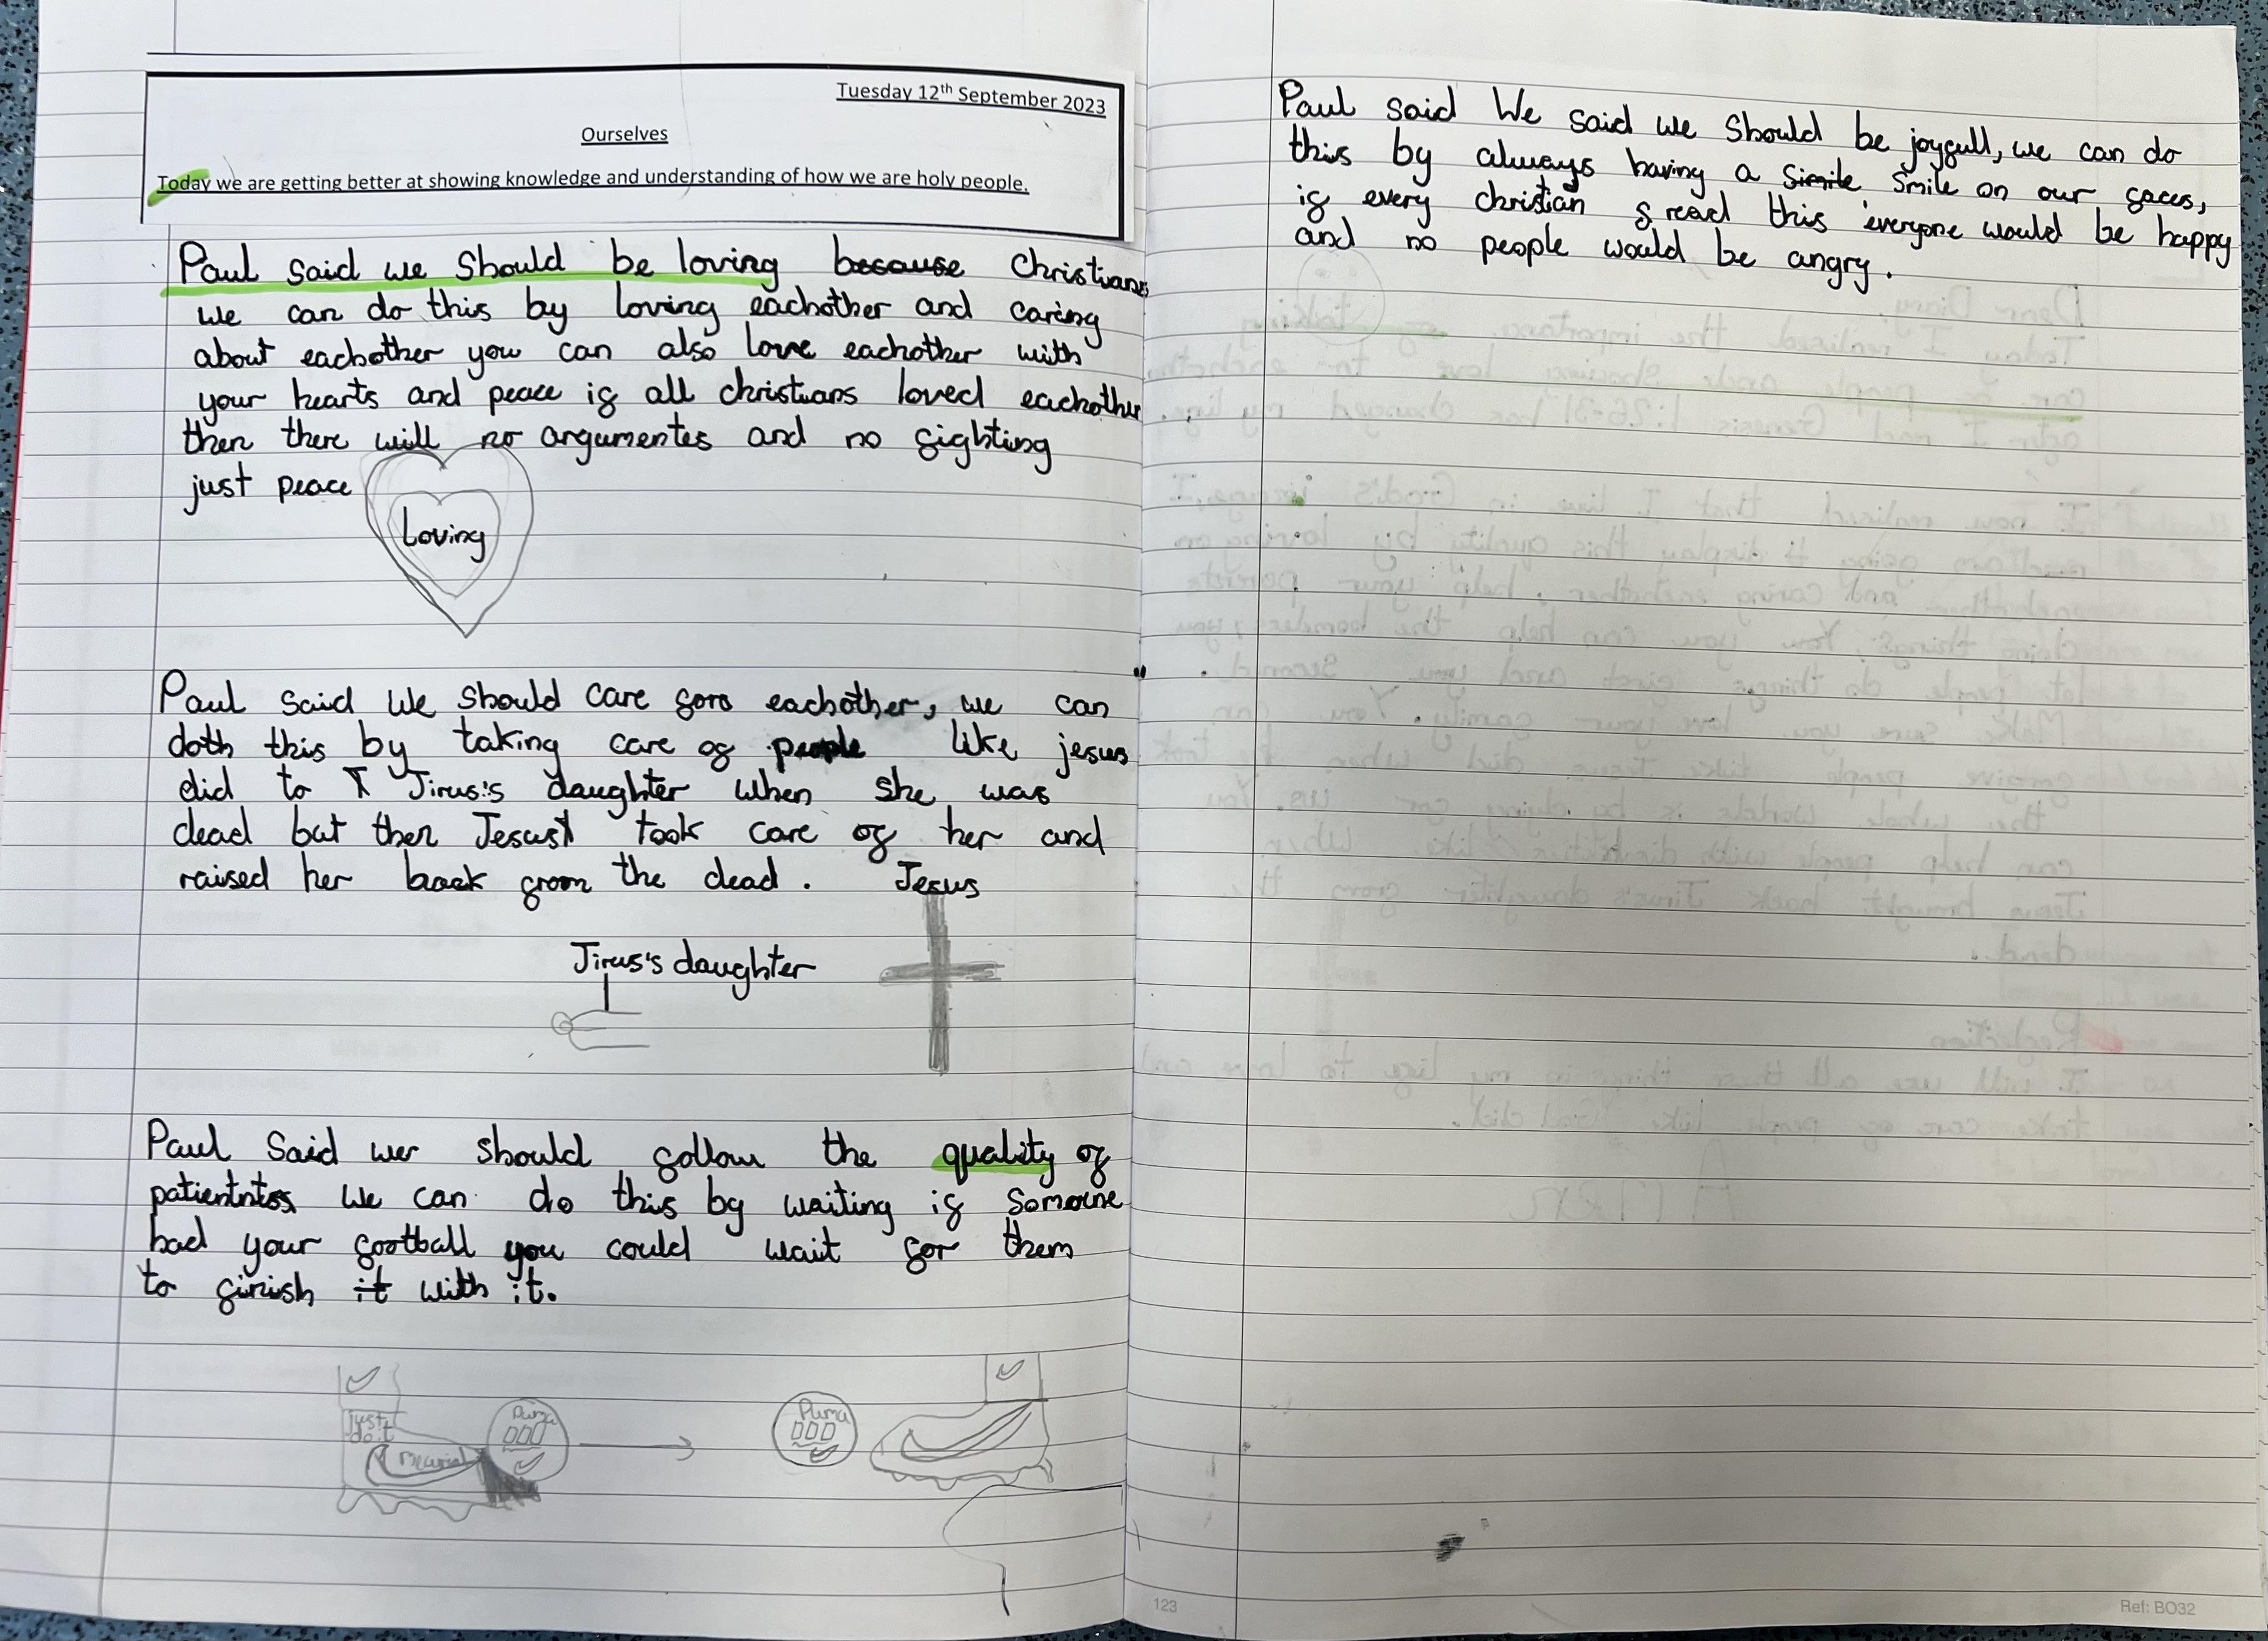 Tuesday 12th September 2023
Ourselves
Today we are getting better at showing knowledge and understanding of how we are holy people.
Paul said we should be loving because Christians
we can do this by loving eachother and caring
about eachother you can also love eachother with
your hearts and peace if all christians loved eachother
then there will no argumentes and no fighting
just peace
Loving
Paul said We should care foro eachother, we can
doth this by taking care of people like jesus
did to Jirus's daughter when she was
dead but then Jesus took care of her and
raised her back from the dead.
Jesus
Jirus's daughter
Paul said wer should follow the quality of
patientntss we can do this by waiting if someone
had your football you could wait for them
to finish it with it.
just
do it
Mecurial
Puma
Puma
Paul said We said we should be joyfull, we can do
this by always having a simile smile on our faces,
if every christian f read this everyone would be happy
and no people would be angry.
123
Ref: BO32